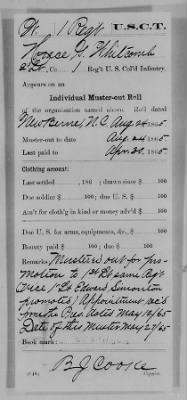 W. 1 Regt U.S.C.T.
Horace G. Whitcomb
2 Lt., Co. 1 Reg't U. S. Col'd Infantry.
Appears on an
Individual Muster-out Roll
of the organization named above. Roll dated
New Berne, N.C. Aug 24, 1865.
Muster-out to date Aug 24, 1865
Last paid to Apr 30, 1865
Clothing account:
Last settled , 186 ; drawn since $ 100
Due soldier $ 100; due U. S. $ 100
Am't for cloth'g in kind or money adv'd $ 100
Due U. S. for arms, equipments, &c., $ 100
Bounty paid $ 100; due $ 100
Remarks: Musters out for pro-
motion to 1st Lt same Regt
Vice 1 Lt Edward Simonton
promoted. Appointment rec'd
from the Pres. dated May 16/65
Date of this Muster May 27/65
Book mark:
B J Cooke
Copyist.